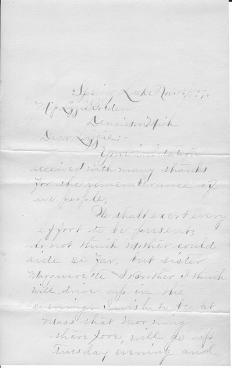 Spring Lake Nov
Dennison Mich
Dear Lizzie:-
received with many thanks
for the remembrance of
we people.
We shall exert every
effort to be present,
do not think mother could
ride so far, but sister
& brother I think
will drive up in the
evening. I wish to be at
Mass that morning
therefore, will go up
Tuesday evening and